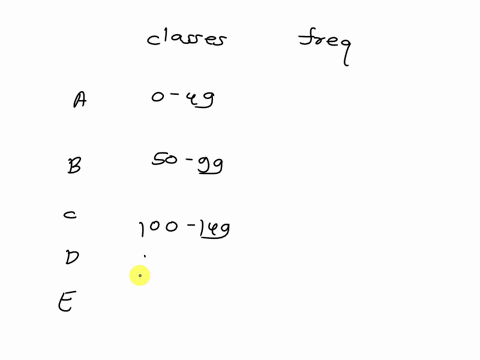 classes freq
A 0-49
B 50-99
C 100-149
D
E